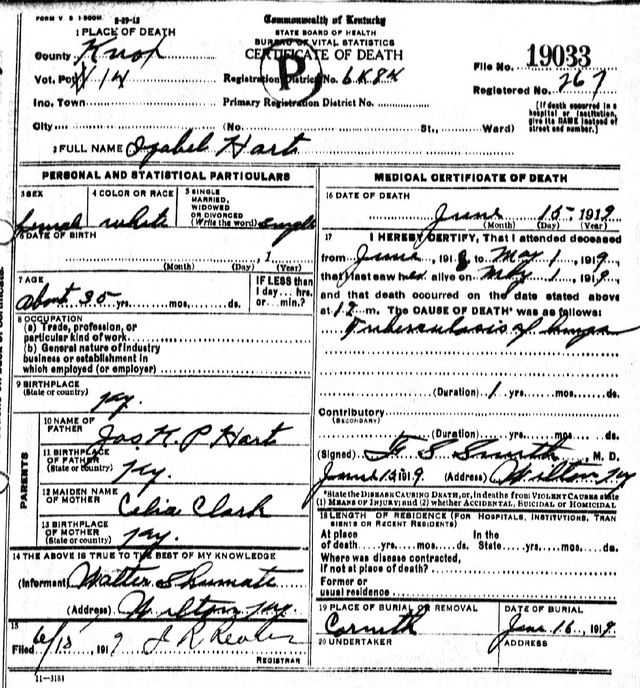 FORM V. S 1-200M 8-29-12
Commonwealth of Kentucky
STATE BOARD OF HEALTH
BUREAU OF VITAL STATISTICS
CERTIFICATE OF DEATH
1 PLACE OF DEATH
County Knox
Vot. Pct 14
Registration District No. 6K84
Inc. Town
Primary Registration District No.
City (No. St., Ward)
File No. 19033
Registered No. 267
[If death occurred in a
hospital or institution,
give its NAME instead of
street and number.]
P
2 FULL NAME Izabel Hart
PERSONAL AND STATISTICAL PARTICULARS
3 SEX
female
4 COLOR OR RACE
white
5 SINGLE
MARRIED,
WIDOWED
OR DIVORCED
(Write the word) single
6 DATE OF BIRTH
, 1
(Month) (Day) (Year)
7 AGE
about 35 yrs. mos. ds.
IF LESS than
1 day hrs.
or min.?
8 OCCUPATION
(a) Trade, profession, or
particular kind of work
(b) General nature of industry
business or establishment in
which employed (or employer)
9 BIRTHPLACE
(State or country) Ky.
PARENTS
10 NAME OF
FATHER Jas. K. P Hart
11 BIRTHPLACE
OF FATHER
(State or country) Ky
12 MAIDEN NAME
OF MOTHER Celia Clark
13 BIRTHPLACE
OF MOTHER
(State or country) Ky.
14 THE ABOVE IS TRUE TO THE BEST OF MY KNOWLEDGE
(Informant) Walter Shumate
(Address) Wilton Ky.
15
Filed 6/18, 1919 J. R.
REGISTRAR
11—3184
MEDICAL CERTIFICATE OF DEATH
16 DATE OF DEATH
June 15 1919
(Month) (Day) (Year)
17 I HEREBY CERTIFY, That I attended deceased
from June, 1918 to May 1, 1919
that I last saw her alive on May 1, 1919
and that death occurred on the date stated above
at 12 m. The CAUSE OF DEATH* was as follows:
Tuberculosis of lungs
(Duration) 1 yrs. mos. ds.
Contributory
(SECONDARY)
(Duration) yrs. mos. ds.
(Signed) F S Smith, M. D.
1919 (Address) Wilton Ky
*State the DISEASE CAUSING DEATH, or, in deaths from VIOLENT CAUSES state
(1) MEANS OF INJURY; and (2) whether ACCIDENTAL, SUICIDAL OR HOMICIDAL
18 LENGTH OF RESIDENCE (FOR HOSPITALS, INSTITUTIONS, TRAN
SIENTS OR RECENT RESIDENTS)
At place In the
of death yrs. mos. ds. State yrs. mos. ds.
Where was disease contracted,
if not at place of death?
Former or
usual residence
19 PLACE OF BURIAL OR REMOVAL
Corinth
DATE OF BURIAL
June 16, 1919
20 UNDERTAKER
ADDRESS